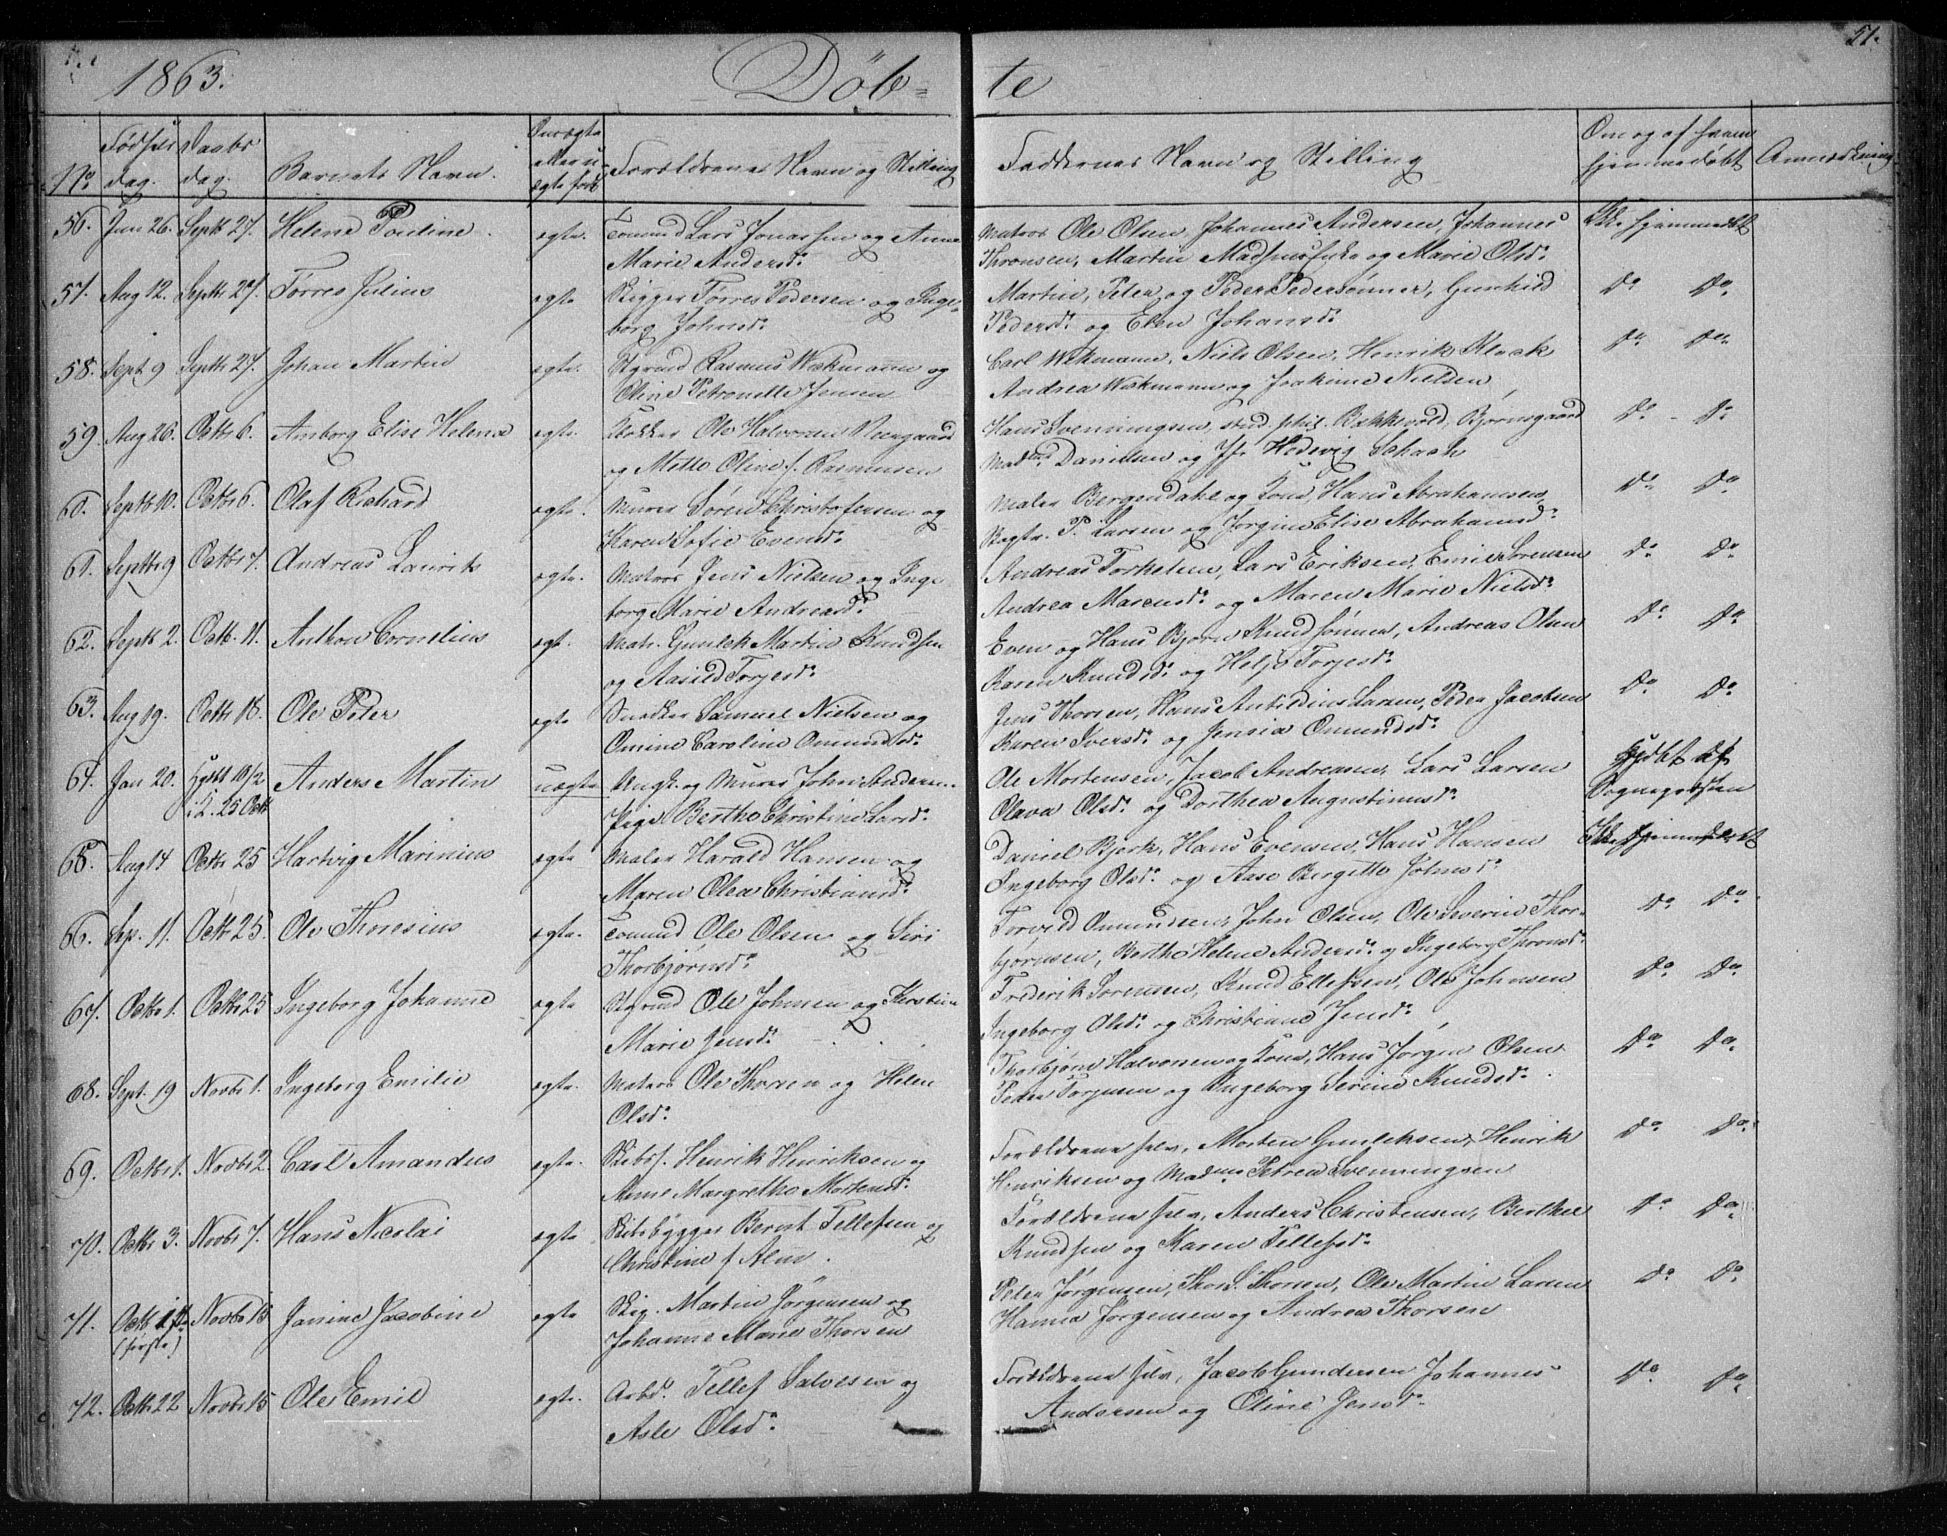 1863. Døb- te 51.
No Fødsels dag. Daabs dag. Barnets Navn. Om ægte eller u ægte født Forældrenes Navn og Stilling Faddernes Navn og Stilling Om og af hvem hjemmedøbt Anmærkning
56. Jun 26. Septb 27. Helene Pouline. ægte. Tømmd Lars Jonassen og Anne Matros Ole Olsen, Johannes Andersen, Johannes Ikke hjemmedøbt
Marie Andersd. Thronsen, Martin og Marie Olsd.
57. Aug 12. Septb 27. Tørres Julius ægte Rigger Tørres Pedersen og Inge- Martin, Peter og Peder Pedersønner, Gunhild Do Do
borg Johnsd. Pedersd. og Elen Johansd.
58. Sept 9 Septb 27. Johan Martin ægte. Styrmd Rasmus Wekmann og Carl Wekmann, Niels Olsen, Henrik Klook Do Do
Oline Petronelle Jensen Andrea Wekmann og Joakime Nielsen
59. Aug 26. Octbr 6. Amborg Elise Helene ægte. Klokker Ole Halvorsen Hans Svenningsen, stud. phil. Bækkevold, Bjørnsgaard Do - Do
og Mette Oline f. Rasmusen Madme Danielsen og Jfr Hedevig Schach
60. Septb 10. Octbr 6. Olaf Richard ægte. Murer Søren Christofersen og Maler Bergendahl og Kone, Hans Abrahamsen Do Do
Karen Sofie Evensd. Bagte. P. Larsen og Jørgine Elise Abrahamsd.
61. Septbr 9 Octbr 7. Andreas Laurits ægte. Matros Jens Nielsen og Inge Andreas Torkelsen, Lars Eriksen, Emil Sørensen Do Do
borg Marie Andreasd. Andrea Marcusd. og Maren Marie Nielsd.
62. Septb 2. Octb. 11. Anthon Cornelius ægt. Matr. Gunlek Martin Knudsen Even og Hans Bjørn Knudsønner, Andreas Olsen Do Do
og Aasild Torjesd. Karen Knudsd. og Helje Torjesd.
63. Aug 19. Octbr 18. Ole Peter ægte Snedker Samuel Nielsen og Jens Thorsen, Hans Larsen, Peder Jacobsen Do Do
Omine Caroline Omundsd. Karen Iversd. og Jensia Omundsd.
64. Jan 20. Hjdbt 10/2 Anders Martin uægte Ungk. og Murer John Andersen Ole Mortensen, Jacob Andreasen, Lars Larsen Hjdbt af
i K. 25 Octb Pige Berthe Christine Larsd. Olava Olsd. og Dorthea Augustinusd. Sognepræsten
65. Aug 14 Octbr 25 Hartvig Marinius ægte Maler Harald Hansen og Daniel Bjørk, Hans Evensen, Hans Hansen Ikke hjemmedøbt
Maren Olea Christiansd. Ingeborg Olsd. og Aase Bergitte Johnsd.
66. Sep. 11. Octb 25. Ole Thoresius ægte. Tømmd Ole Olsen og Siri Torvild Omundsen, John Olsen, Ole Severin Thor- Do Do
Thorbjørnsd. bjørnsen, Berthe Helene Andersd. og Ingeborg Thronsd.
67. Octbr 1. Octbr 25 Ingeborg Johanne ægte Styrmd Ole Johnsen og Kirstine Frederik Sørensen, Knud Ellefsen, Ole Johnsen Do Do
Marie Jensd. Ingeborg Olsd. og Christiane Jensd.
68. Sept. 19 Novbr 1. Ingeborg Emilie ægte. Matros Ole Thorsen og Helen Thorbjørn Halvorsen og Kone, Hans Jørgen Olsen Do Do
Olsd. Peder Torjusen og Ingeborg Serine Knudsd.
69. Octbr 1. Novbr 2. Carl Amandus ægte. Skibsf. Henrik Henriksen og Forældrene selv, Morten Gunleksen, Henrik Do Do
Anne Margrethe Mortensd. Henriksen og Madme Petrea Svenningsen
70. Octbr 3. Novbr 7. Hans Nicolai ægte Skibsbygger Bernt Tellefsen og Forældrene selv, Anders Christensen, Berthel Do Do
Christine f Alm. Knudsen og Karen Tellefsd.
71. Octb 1ste Novbr 15 Janine Jacobine ægte Skip. Martin Jørgensen og Peter Jørgensen, Thor S. Thorsen, Ole Martin Larsen Do Do
(første) Johanne Marie Thorsen Hanna Jørgensen og Andrea Thorsen
72. Octbr 22 Novbr 15 Ole Emil ægte. Arbd. Tellef Salvesen og Forældrene selv, Jacob Gundersen Johannes Do Do
Asle Olsd. Andersen og Oline Jensd.